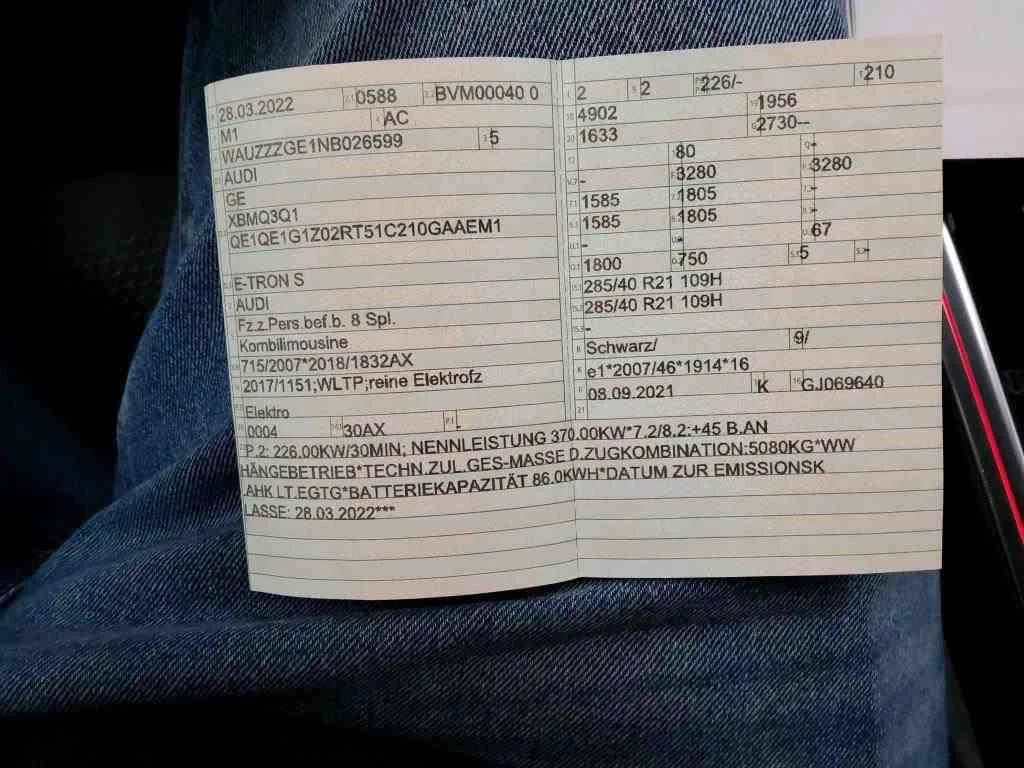 28.03.2022 0588 BVM00040 0
M1 AC
WAUZZZGE1NB026599 5
AUDI
GE
XBMQ3Q1
QE1QE1G1Z02RT51C210GAAEM1
E-TRON S
AUDI
Fz.z.Pers.bef.b. 8 Spl.
Kombilimousine
715/2007*2018/1832AX
2017/1151;WLTP;reine Elektrofz
Elektro
0004 30AX -
2 2 226/- 210
4902 1956
1633 2730--
80 -
- 3280 3280
1585 1805 -
1585 1805 -
- - 67
1800 750 5 -
285/40 R21 109H
285/40 R21 109H
-
Schwarz/ 9/
e1*2007/46*1914*16
08.09.2021 K GJ069640
P.2: 226.00KW/30MIN; NENNLEISTUNG 370.00KW*7.2/8.2:+45 B.AN
HÄNGEBETRIEB*TECHN.ZUL.GES-MASSE D.ZUGKOMBINATION:5080KG*WW
.AHK LT.EGTG*BATTERIEKAPAZITÄT 86.0KWH*DATUM ZUR EMISSIONSK
LASSE: 28.03.2022***